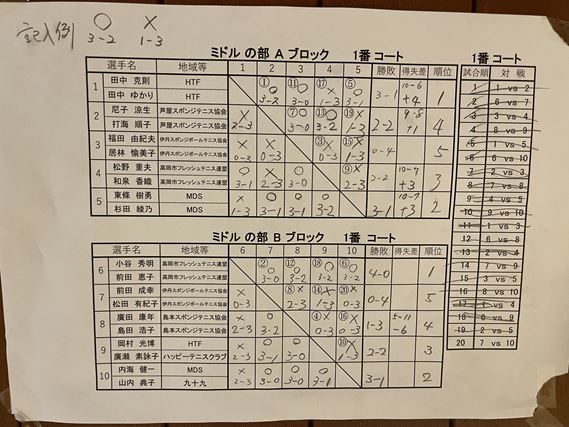 記入例 ○ 3-2 × 1-3
ミドル の部 A ブロック 1番 コート
選手名 地域等 1 2 3 4 5 勝敗 得失差 順位
1 田中 克則 HTF ① ⑪ ⑰ ⑤
田中 ゆかり HTF ○ 3-2 ○ 3-0 × 1-3 ○ 3-1 3-1 10-6 +4 1
2 尼子 涼生 芦屋スポンジテニス協会 ⑦ ⑬ ⑲
打海 順子 芦屋スポンジテニス協会 × 2-3 ○ 3-0 ○ 3-2 × 1-3 2-2 9-8 +1 4
3 福田 由紀夫 伊丹スポンジテニス協会 ③ ⑮
居林 愉美子 伊丹スポンジテニス協会 × 0-3 × 0-3 × 0-3 × 1-3 0-4 5
4 松野 重夫 高岡市フレッシュテニス連盟 ⑨
和泉 香織 高岡市フレッシュテニス連盟 ○ 3-1 × 2-3 ○ 3-0 × 2-3 2-2 10-7 +3 3
5 東條 樹勇 MDS
杉田 綾乃 MDS × 1-3 ○ 3-1 ○ 3-1 ○ 3-2 3-1 10-7 +3 2
ミドル の部 B ブロック 1番 コート
選手名 地域等 6 7 8 9 10 勝敗 得失差 順位
6 小谷 秀明 高岡市フレッシュテニス連盟 ② ⑫ ⑱ ⑥
前田 恵子 高岡市フレッシュテニス連盟 ○ 3-0 ○ 3-2 ○ 3-2 ○ 3-2 4-0 1
7 前田 成幸 伊丹スポンジテニス協会 ⑧ ⑭ ⑳
松田 有紀子 伊丹スポンジテニス協会 × 0-3 × 2-3 × 1-3 × 0-3 0-4 5
8 廣田 康年 島本スポンジテニス協会 ④ ⑯
島田 浩子 島本スポンジテニス協会 × 2-3 ○ 3-2 × 0-3 × 0-3 1-3 5-11 -6 4
9 岡村 光博 HTF ⑩
廣瀬 素詠子 ハッピーテニスクラブ × 2-3 ○ 3-1 ○ 3-0 × 1-3 2-2 3
10 内海 健一 MDS
山内 典子 九十九 × 2-3 ○ 3-0 ○ 3-0 ○ 3-1 3-1 2
1番 コート
試合順 対 戦
1 1 vs 2
2 6 vs 7
3 3 vs 4
4 8 vs 9
5 1 vs 5
6 6 vs 10
7 2 vs 3
8 7 vs 8
9 4 vs 5
10 9 vs 10
11 1 vs 3
12 6 vs 8
13 2 vs 4
14 7 vs 9
15 3 vs 5
16 8 vs 10
17 1 vs 4
18 6 vs 9
19 2 vs 5
20 7 vs 10